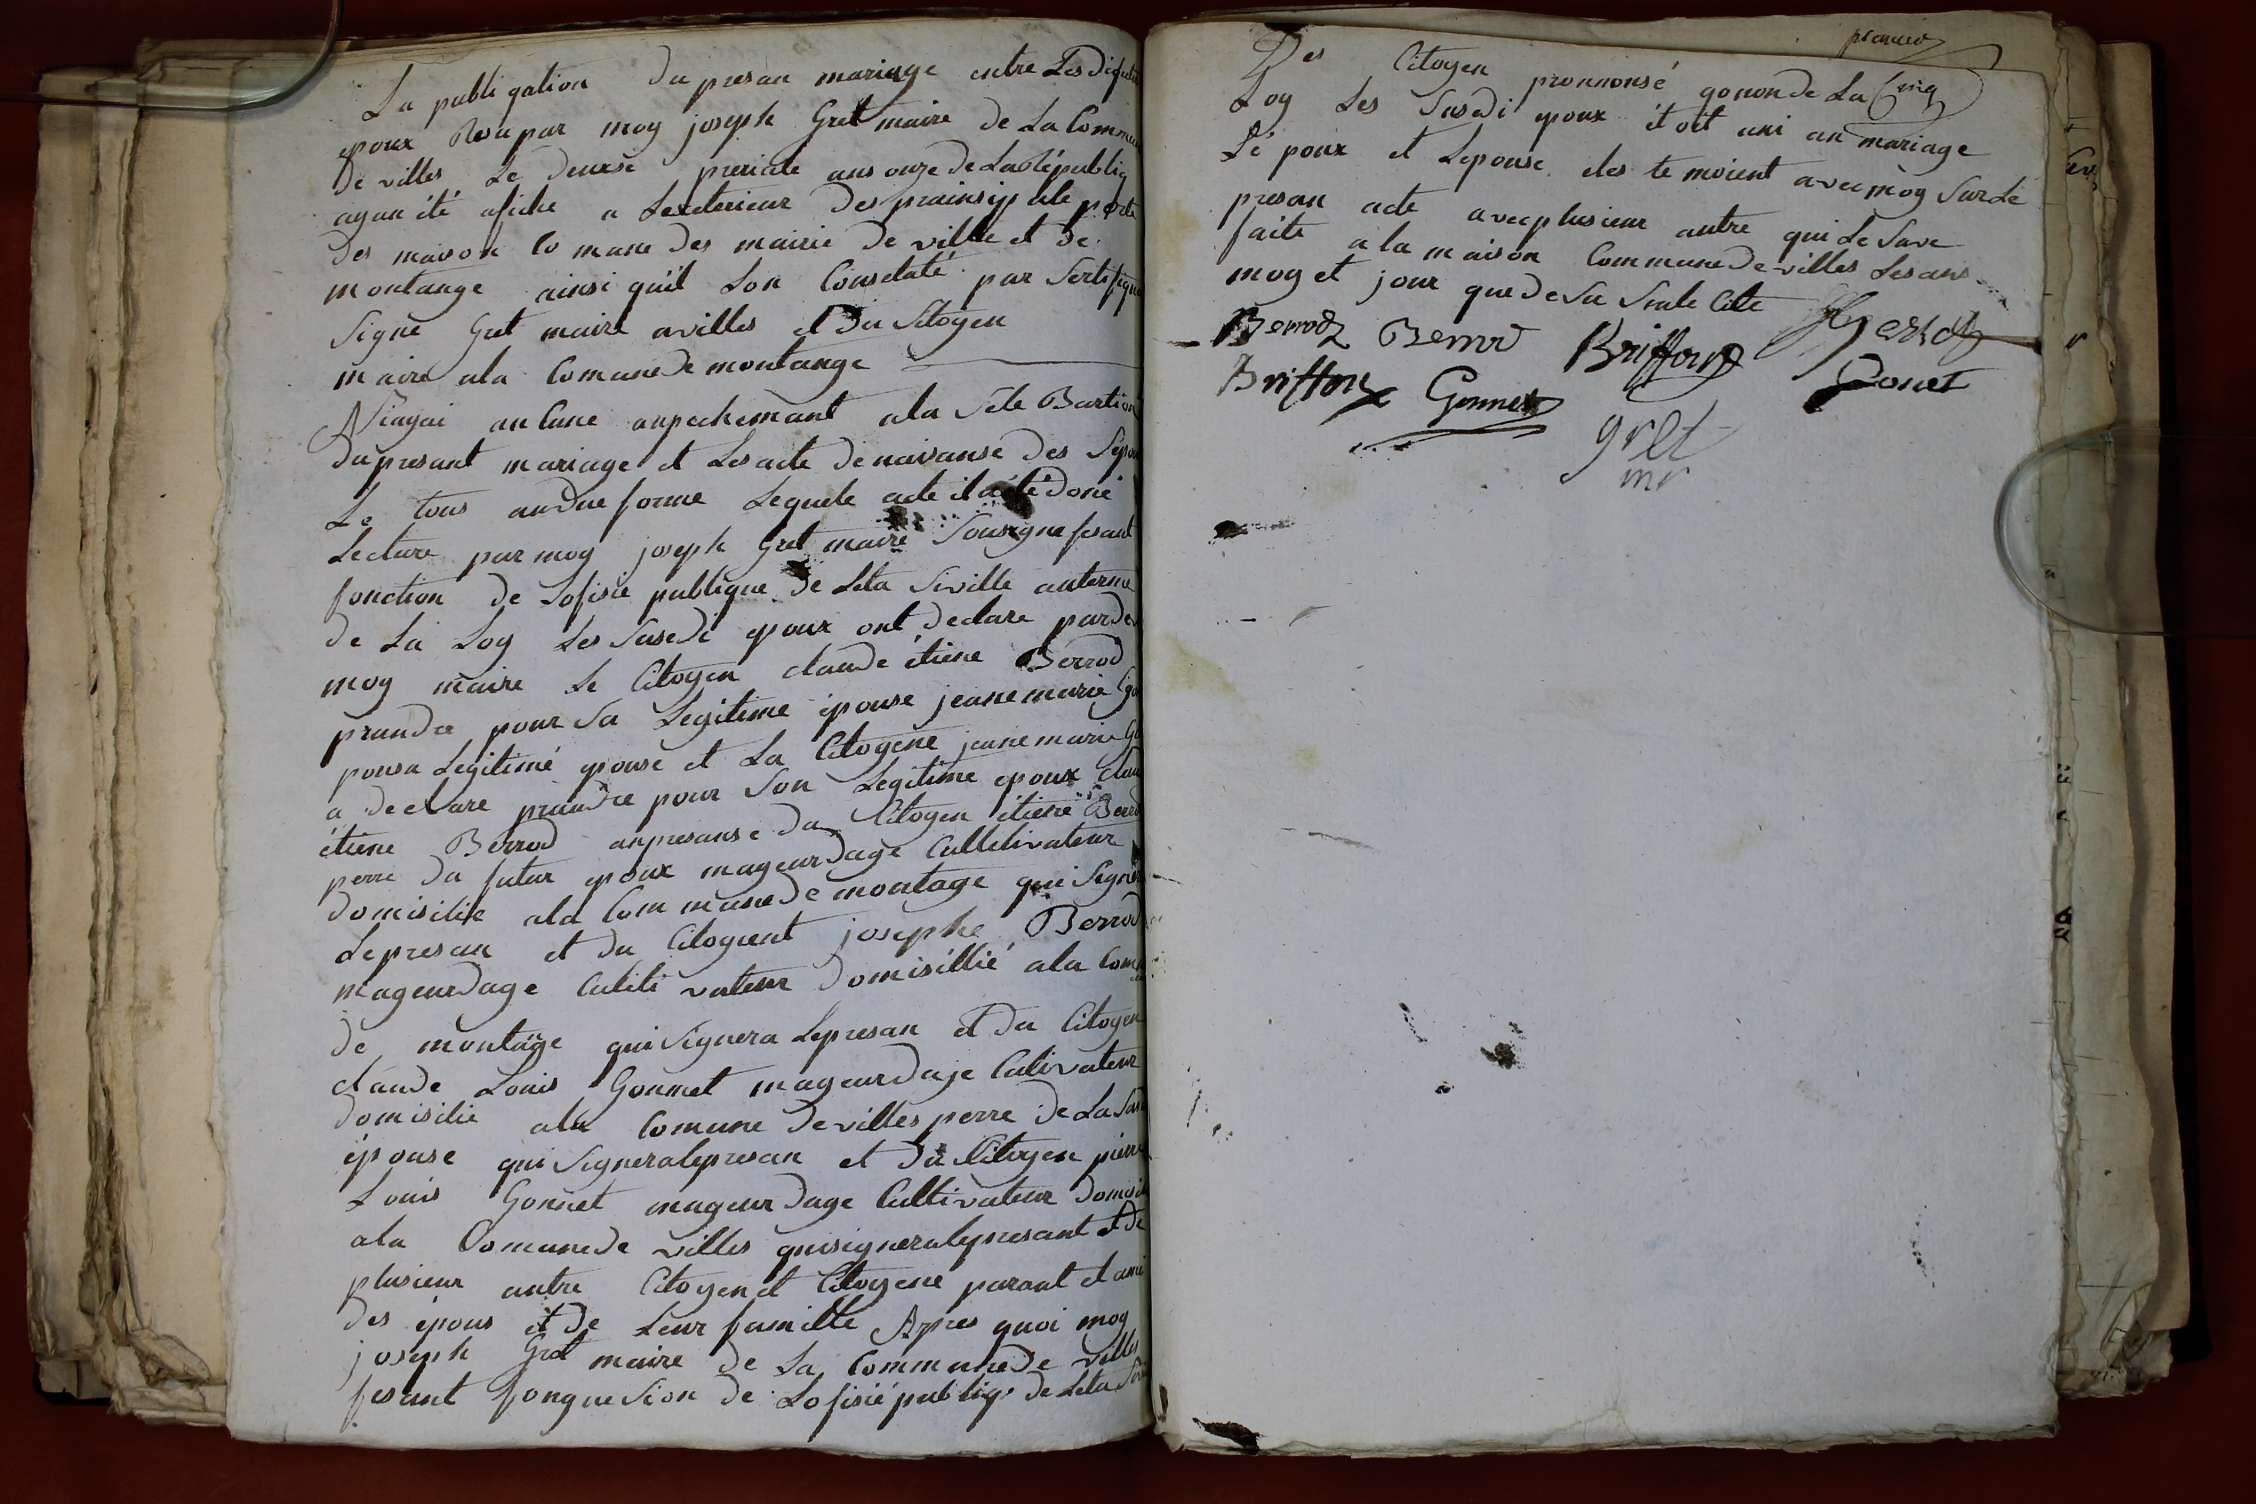 La publigation du presan mariage entre Les di
epoux par moy joseph Gret maire de La Commun
de villes Le deuxse preriale ans onze de La Républiq
ayan été afiche a Lexterieur des prainsipale porte
des maison Comune des mairie de ville et de
montange ainsi quil Son Consdaté par Sertifiqua
Signe Gret maire a villes et du Sitoyen
maire ala Comune de montange
Niayai aucune anpechemant ala Sele Bartion
du presant mariage et Les acte de naisanse des Sepou
Le tous andue forme Lequele acte il a été doné
Lecture par moy joseph Gret maire Sousigne fesant
fonction de Lofisié publique de Leta Siville auterme
de La Loy Les Susedi epoux ont declare parde
moy maire Le Citoyen claude étiene Berrod
prandre pour Sa Legitime épouse jeane marie Go
poursa Legitimé epouse et La Citoyene jeane marie Go
a declare prandre pour Son Legitime epoux Clau
étiene Berrod anpresanse du Citoyen étiene Berro
perre du futur epoux mageurdage Culletivateur
domisilie ala Commune de montage qui Signer
Le presan et du Citogient josephe Berrod
mageurdage Culiti vateur domisillié ala Com
de montange qui Signera Lepresan et du Citoyen
claude Louis Gonnet mageurdaje Culivateur
domisilie ala Comune de villes perre de La Sus
épouse qui Signeralepresan et du Citoyen pierre
Louis Gonnet mageurdage Cultivateur domisi
ala Comune de villes quisigneralepresant et de
plusieur autre Citoyen et Citoyene parant et ami
des épous et de Leur famille Apres quoi moy
joseph Gret maire de La Commune de villes
fesant fonguesion de Lofisié publiq. de Leta
premier
Des Citoyen pronnonsé gonon de La Cinq
Loy Les Susedi epoux étoit uni an mariage
Lé poux et Lepouse. eles te moient avec moy Sur Lé
presan acte avecplusieur autre qui Le Save
faite a la maison Commune de villes Lesans
moy et jour que de Su Sinle Cite
Berrod Berrod Briffod
Briffon Gonnet Gonet
gret
mr